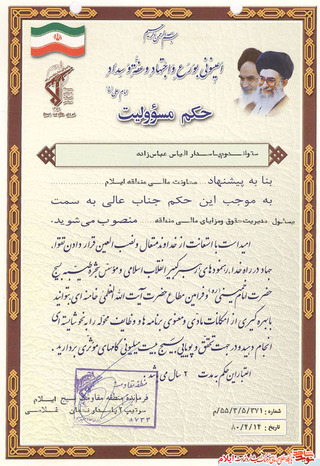 بسم الله الرحمن الرحیم
اعینونی بورع و اجتهاد و عفة و سداد
حکم مسؤولیت
ستوان دوم پاسدار الیاس عباس زاده
بنا به پیشنهاد... معاونت مالی منطقه ایلام...
به موجب این حکم جناب عالی به سمت
مسئول مدیریت حقوق و مزایای مالی منطقه ... منصوب می‌شوید.
امید است با استعانت از خداوند متعال و نصب العین قرار دادن تقوا،
جهاد در راه خدا، رهنمودهای رهبر کبیر انقلاب اسلامی و مؤسس شجره طیبه بسیج
حضرت امام خمینی (ره) و فرامین مطاع حضرت آیت الله العظمی خامنه ای بتوانید
با بهره گیری از امکانات مادی و معنوی برنامه ها و وظایف محوله را به نحو شایسته ای
انجام دهید و در جهت تحقق و پویایی بسیج بیست میلیونی گامهای مؤثری بردارید.
اعتبار این حکم به مدت ۲ سال می باشد.
منطقه مقاومت
فرمانده منطقه مقاومت بسیج ایلام
سرتیپ ۲ پاسدار نعمان غلامی
۸۷۳۳
شماره : ۵۵/۳/۵/۳۷۱/م
تاریخ : ۸۰/۴/۱۴